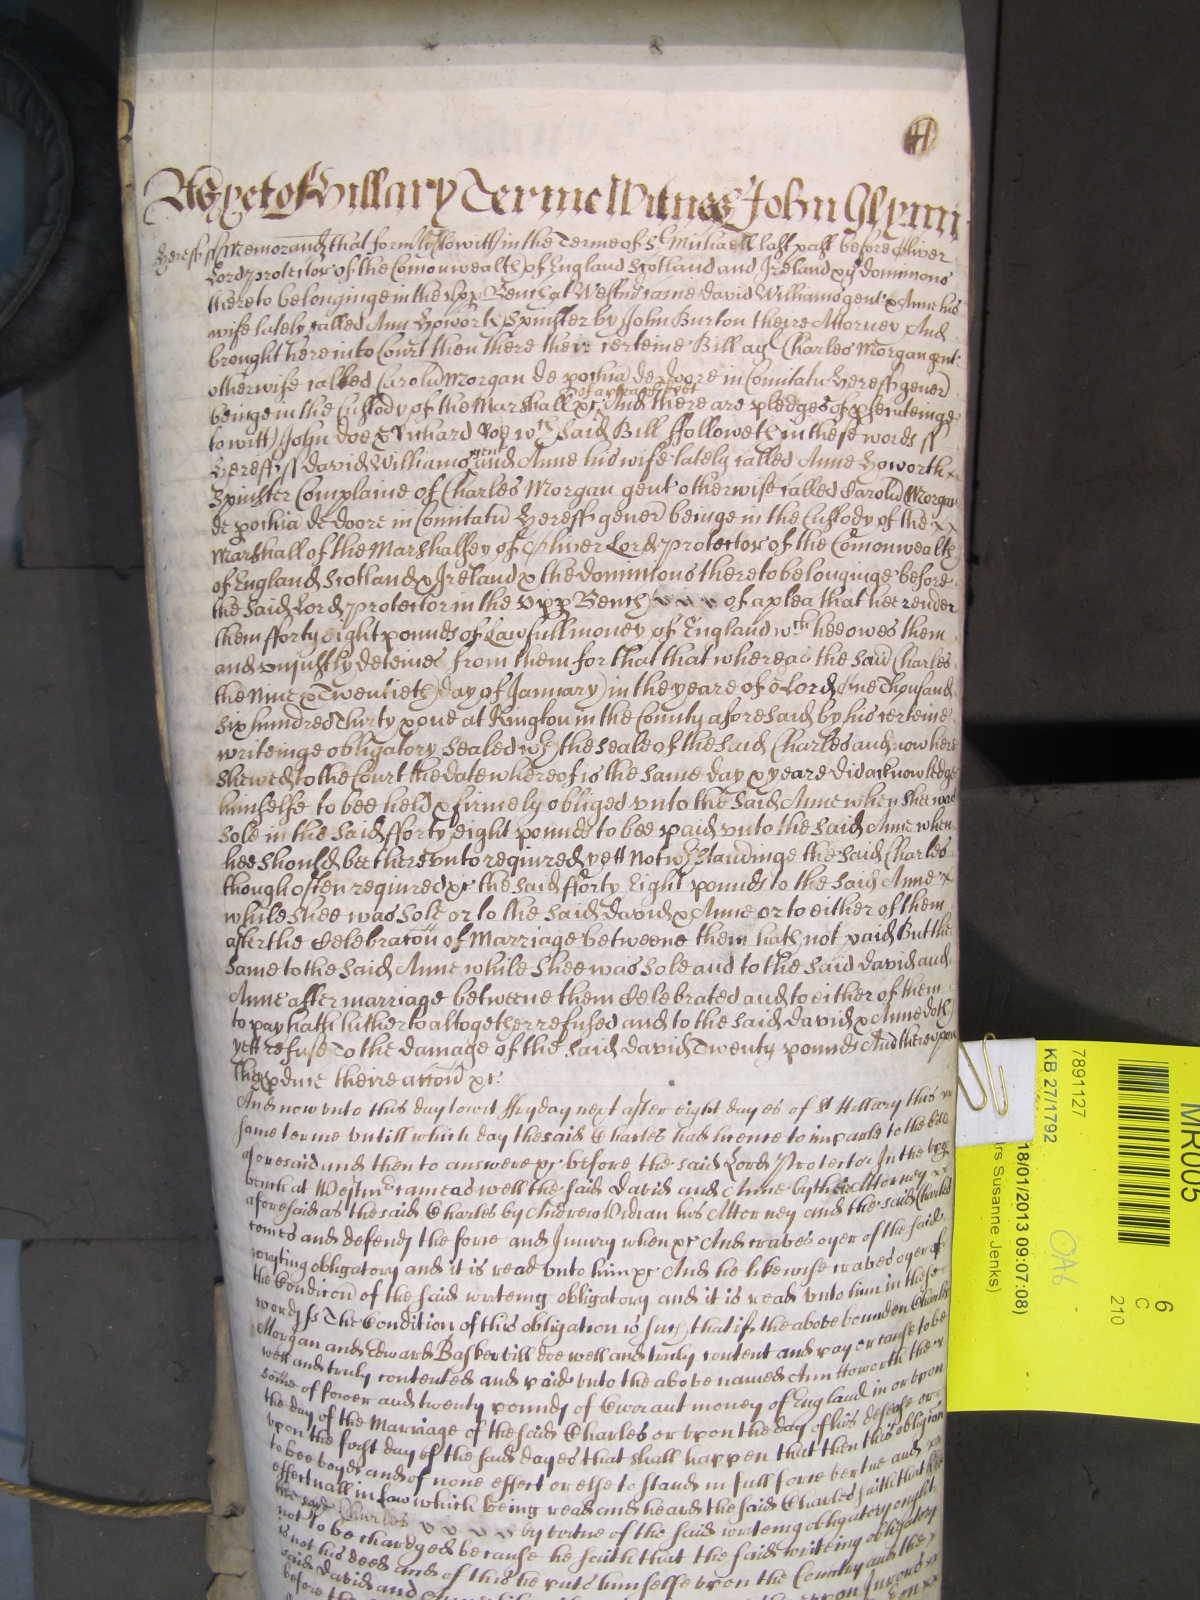 H
As yet of Hillary Terme Witnes John Glynn
Hereff ss Memorand that formly to witt in the Terme of St Michaell last past before Oliver
Lord protector of the Comonwealth of England Scotland and Ireland & ye dominions
thereto belonginge in the Upp Bench at Westmr came david Williams gent & Anne his
wife lately called Ann Howorth Spinster by John Burton theire Attorney And
brought here into Court then there their certeine Bill agt Charles Morgan gent
otherwise called Carolu Morgan de pochia de doore in Comitatu Hereff gener
of a plea of debt
beinge in the Custody of the Marshall &c And there are pledges of psecuteinge
to witt John doe & Richard Roe wch said Bill ffolloweth in these words ss
Hereff ss david Williams gent and Anne his wife lately called Anne Howorth
Spinster Complaine of Charles Morgan gent otherwise called Carolu Morgan
de pochia de doore in Comitatu Hereff gener beinge in the Custody of the xx
Marshall of the Marshalsey of Oliver Lord protector of the Comonwealth
of England Scotland & Ireland & the dominions thereto belonginge before
the said Lord protector in the Upp Bench of a plea that hee render
them fforty eight pounds of Lawfull money of England wch hee owes them
and uniustly deteines from them for that that whereas the said Charles
the Nine & Twentieth day of January in the yeare of o Lord One Thousand
six hundred Thirty & one at Kington in the County aforesaid by his certeine
writeinge obligatory sealed wth the seale of the said Charles and now here
shewed to the Court the date whereof is the same day & yeare did acknowledge
himselfe to bee held & firmely obliged unto the said Anne when shee was
sole in the said fforty eight pounds to bee paid unto the said Anne when
hee should bee thereunto required yett notwthstandinge the said Charles
though often required &c the said fforty Eight pounds to the said Anne x
while shee was sole or to the said david & Anne or to either of them
after the Celebratoñ of Marriage betweene them hath not paid But the
same to the said Anne while shee was sole and to the said david and
Anne after marriage betweene them Celebrated and to either of them
to pay hath hitherto altogether refused and to the said david & Anne doth
yett refuse To the damage of the said david Twenty pounds And thereupon
they pduce theire accoñ &c
And now unto this day to witt ffryday next after eight dayes of St Hillary this
same terme untill which day the said Charles had licence to imparle to the bill
aforesaid and then to answere &c before the said Lord Protector In the upp
bench at Westmr came as well the said David and Anne by their Attorney xx
aforesaid as the said Charles by Andrew Vidian his Attorney and the said Charles
comes and defends the force and Iniury when &c And craves oyer of the said
wryting obligatory and it is read unto him &c And he likewise craves oyer of
the Condicoñ of the said writeing obligatory and it is read unto him in these
words ss The Condition of this obligation is such that if the above bounden Charles
Morgan and Edward Baskervill doe well and truly content and pay or cause to be
well and truly contented and paid unto the above named Ann Howorth the
some of fower and twenty pounds of Currant money of England in or upon
the day of the Marriage of the said Charles or upon the day of his decease or
upon the first day of the said dayes that shall happen that then this obligacoñ
to bee voyd and of none effect or else to stand in full force vertue and
effectuall in Law which being read and heard the said Charles saith that hee
the said Charles by virtue of the said writeing obligatory ought
not to be charged because he saith that the said writeing obligatory
is not his deed and of this he puts himselfe upon the Country and the
said David and
before the
MR005
6
C
210
7891127
KB 27/1792
18/01/2013 09:07:08)
rs Susanne Jenks)